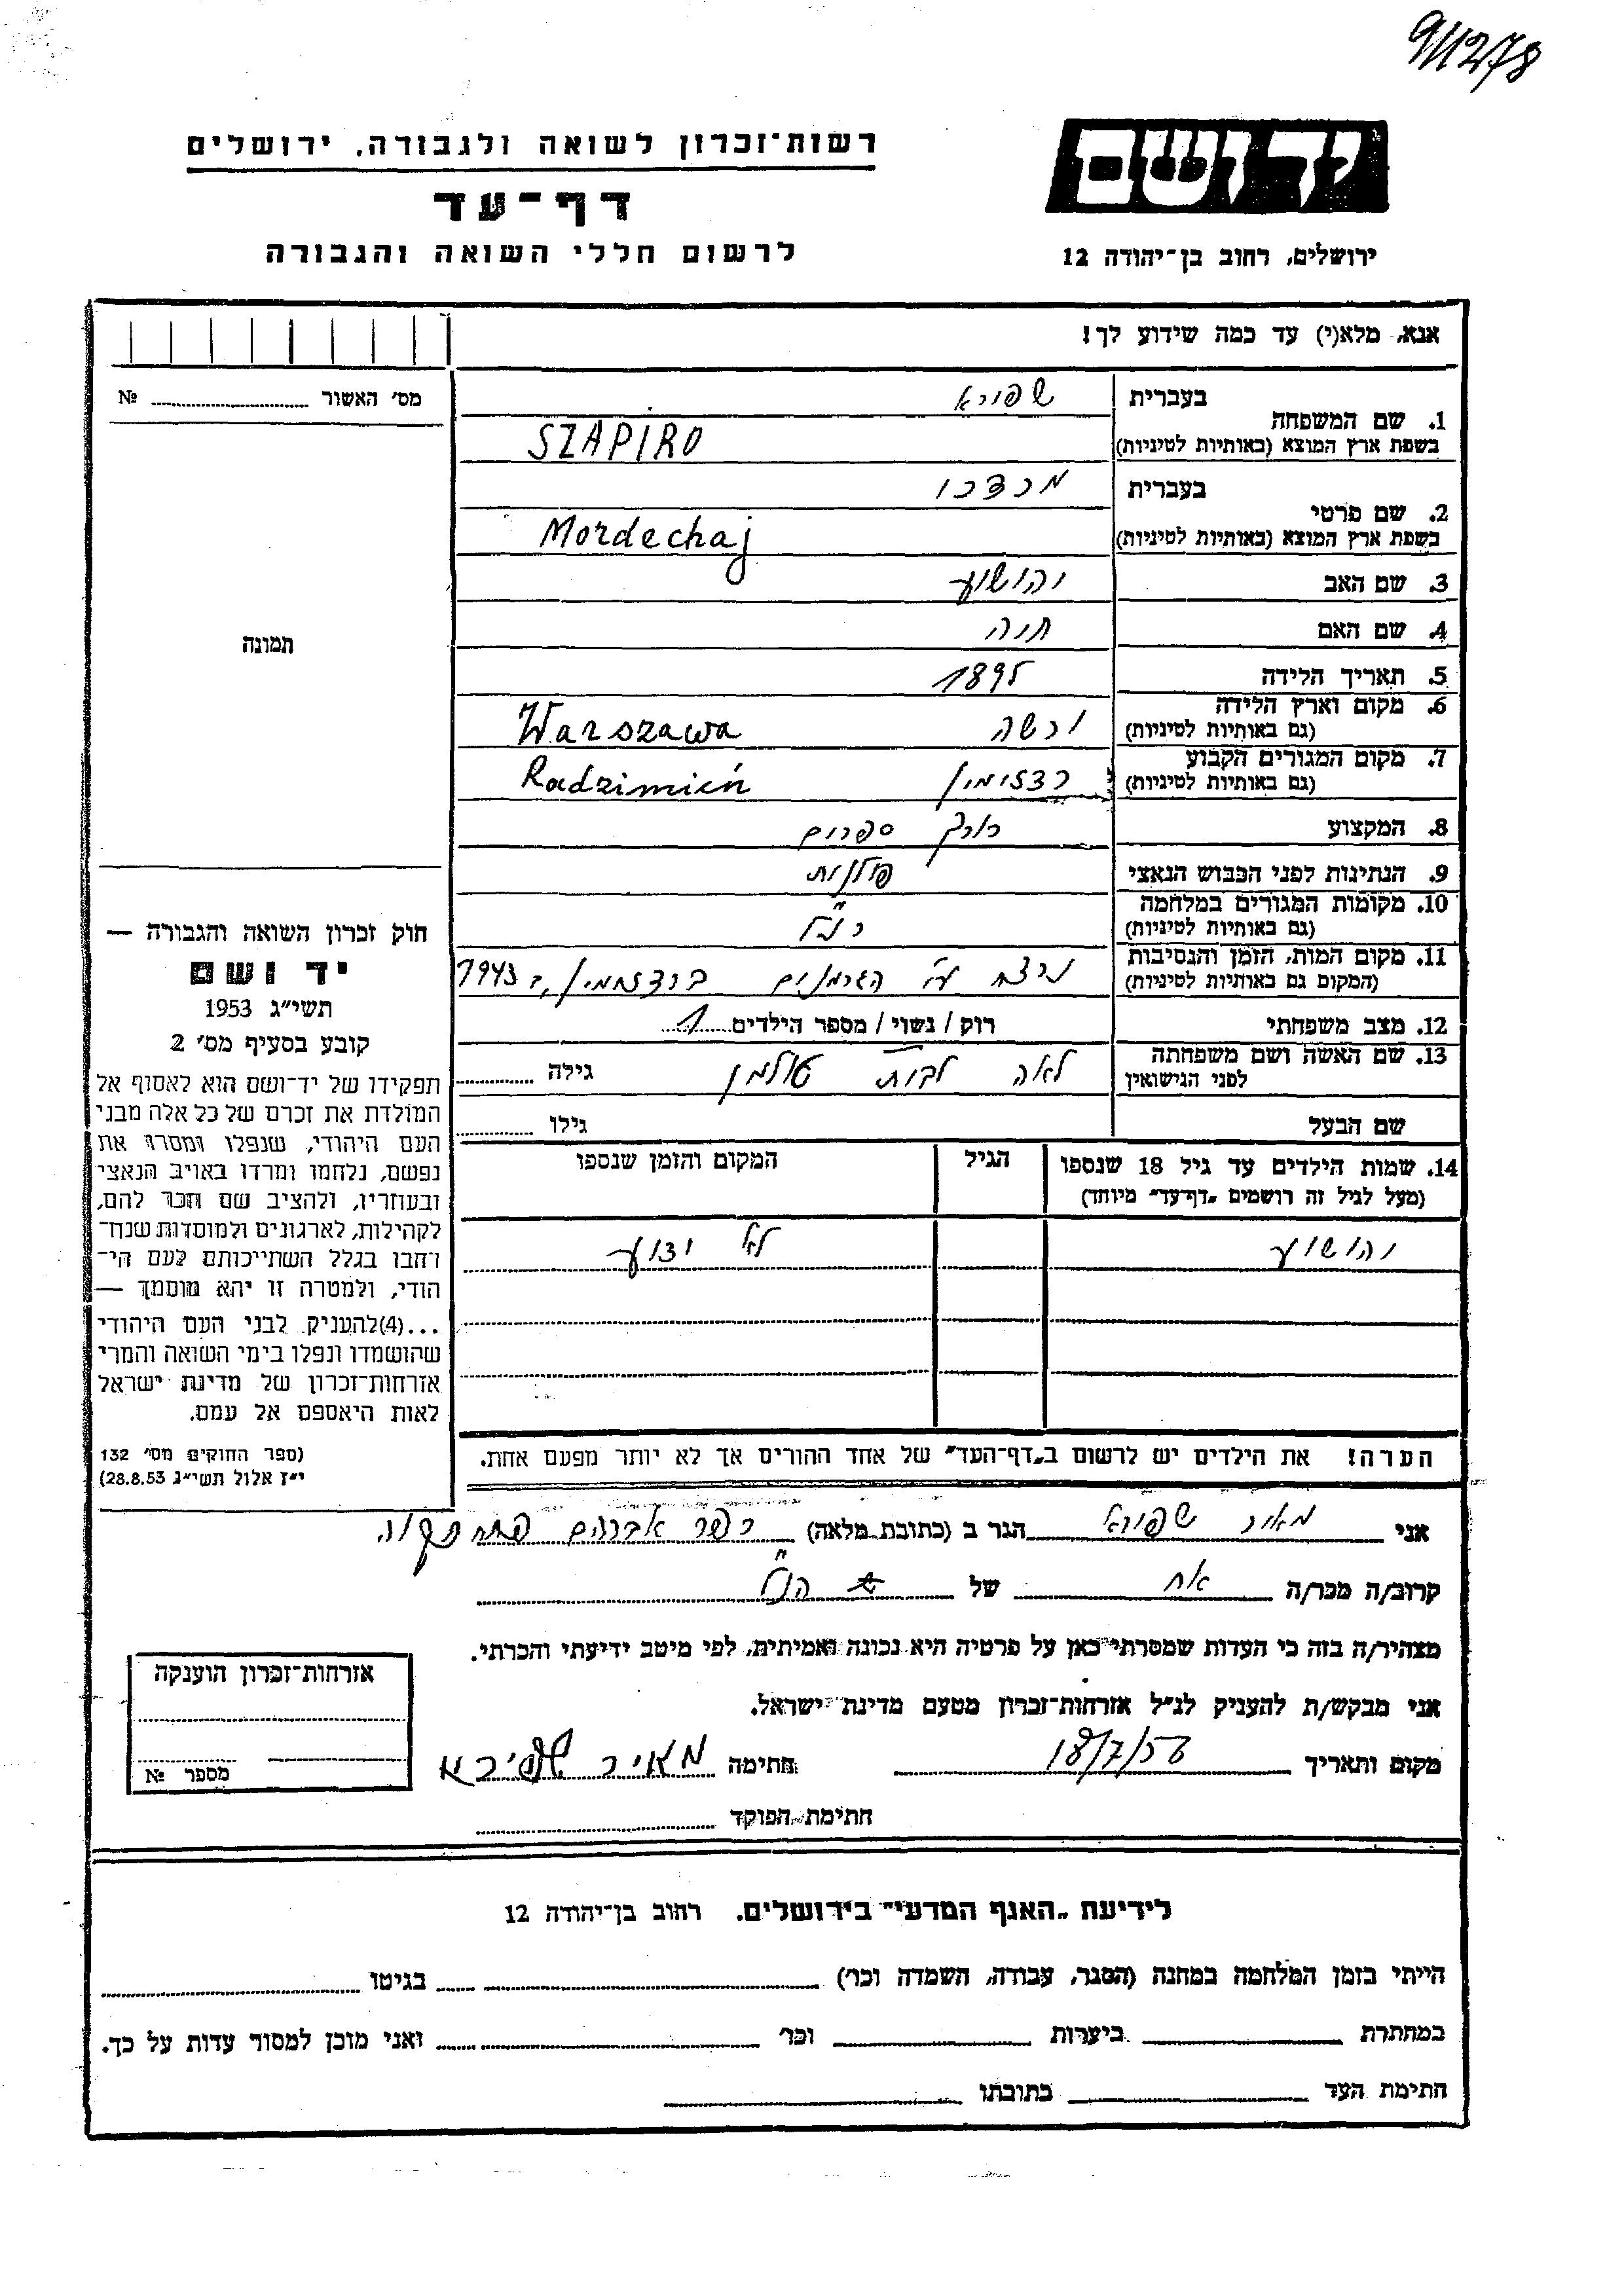 911278
רשות־זכרון לשואה ולגבורה, ירושלים
דף־עד
לרשום חללי השואה והגבורה
יד ושם
ירושלים, רחוב בן־יהודה 12
אנא, מלא(י) עד כמה שידוע לך!
מס׳ האשור № 
תמונה
1. שם המשפחה
בעברית שפירא
בשפת ארץ המוצא (באותיות לטיניות) SZAPIRO
2. שם פרטי
בעברית מרדכי
בשפת ארץ המוצא (באותיות לטיניות) Mordechaj
3. שם האב יהושע
4. שם האם חיה
5. תאריך הלידה 1895
6. מקום וארץ הלידה
(גם באותיות לטיניות) ורשה Warszawa
7. מקום המגורים הקבוע
(גם באותיות לטיניות) רדזימין Radzimień
8. המקצוע כורך ספרים
9. הנתינות לפני הכבוש הנאצי פולנית
10. מקומות המגורים במלחמה
(גם באותיות לטיניות) כנ״ל
11. מקום המות, הזמן והנסיבות
(המקום גם באותיות לטיניות) נרצח ע״י הגרמנים ברדזימין ב 1943
12. מצב משפחתי רוק / נשוי / מספר הילדים 1
13. שם האשה ושם משפחתה
לפני הנישואין לאה לבית טולמן גילה
שם הבעל גילו
14. שמות הילדים עד גיל 18 שנספו הגיל המקום והזמן שנספו
(מעל לגיל זה רושמים „דף־עד״ מיוחד)
יהושע לא ידוע
הערה! את הילדים יש לרשום ב„דף־העד״ של אחד ההורים אך לא יותר מפעם אחת.
חוק זכרון השואה והגבורה —
יד ושם
תשי״ג 1953
קובע בסעיף מס׳ 2
תפקידו של יד־ושם הוא לאסוף אל
המולדת את זכרם של כל אלה מבני
העם היהודי, שנפלו ומסרו את
נפשם, נלחמו ומרדו באויב הנאצי
ובעוזריו, ולהציב שם וזכר להם,
לקהילות, לארגונים ולמוסדות שנח־
רהבו בגלל השתייכותם לעם הי־
הודי, ולמטרה זו יהא מוסמך —
...(4)להעניק לבני העם היהודי
שהושמדו ונפלו בימי השואה והמרי
אזרחות־זכרון של מדינת ישראל
לאות היאספם אל עמם.
(ספר החוקים מס׳ 132
י״ז אלול תשי״ג 28.8.53)
אני מאיר שפירא הגר ב (כתובת מלאה) כפר אברהם פתח תקוה
קרוב/ה מכר/ה אח של הנ״ל
מצהיר/ה בזה כי העדות שמסרתי כאן על פרטיה היא נכונה ואמיתית, לפי מיטב ידיעתי והכרתי.
אני מבקש/ת להעניק לנ״ל אזרחות־זכרון מטעם מדינת ישראל.
מקום ותאריך 18/7/56 חתימה מאיר שפירא
חתימת הפוקד
אזרחות־זכרון הוענקה
מספר №
לידיעת „האגף המדעי״ בירושלים, רחוב בן־יהודה 12
הייתי בזמן המלחמה במחנה (הסגר, עבודה, השמדה וכו׳) בגיטו
במחתרת ביערות וכו׳ ואני מוכן למסור עדות על כך.
חתימת העד כתובתו